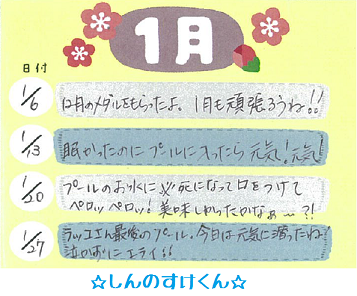 1月
日付
1/6
12月のメダルをもらったよ。1月も頑張ろうね!!
1/13
眠かったのにプールに入ったら元気!元気!
1/20
プールのお水に必死になって口をつけて
ペロッペロッ!美味しかったかなぁ〜?!
1/27
ラッコさん最後のプール。今日は元気に潜ったね!
泣かずにエライ!!
☆しんのすけくん☆